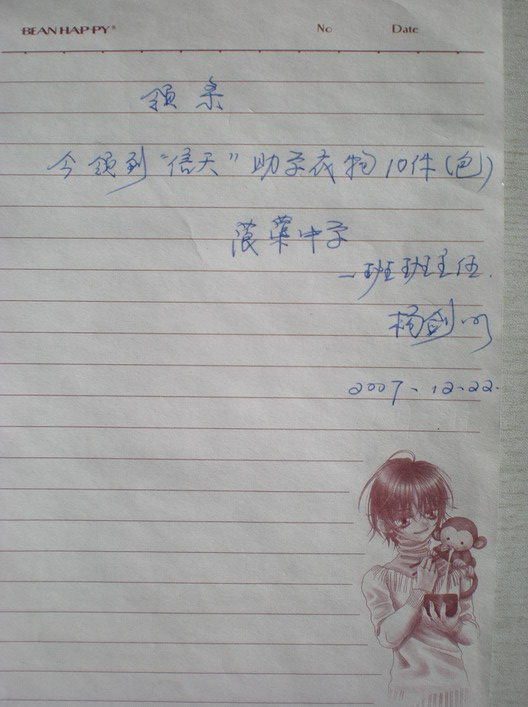 BEAN HAPPY® No Date
领条
今领到“信天”助学衣物10件(包)
菠萝中学
一班班主任.
杨剑
2007.12.22.